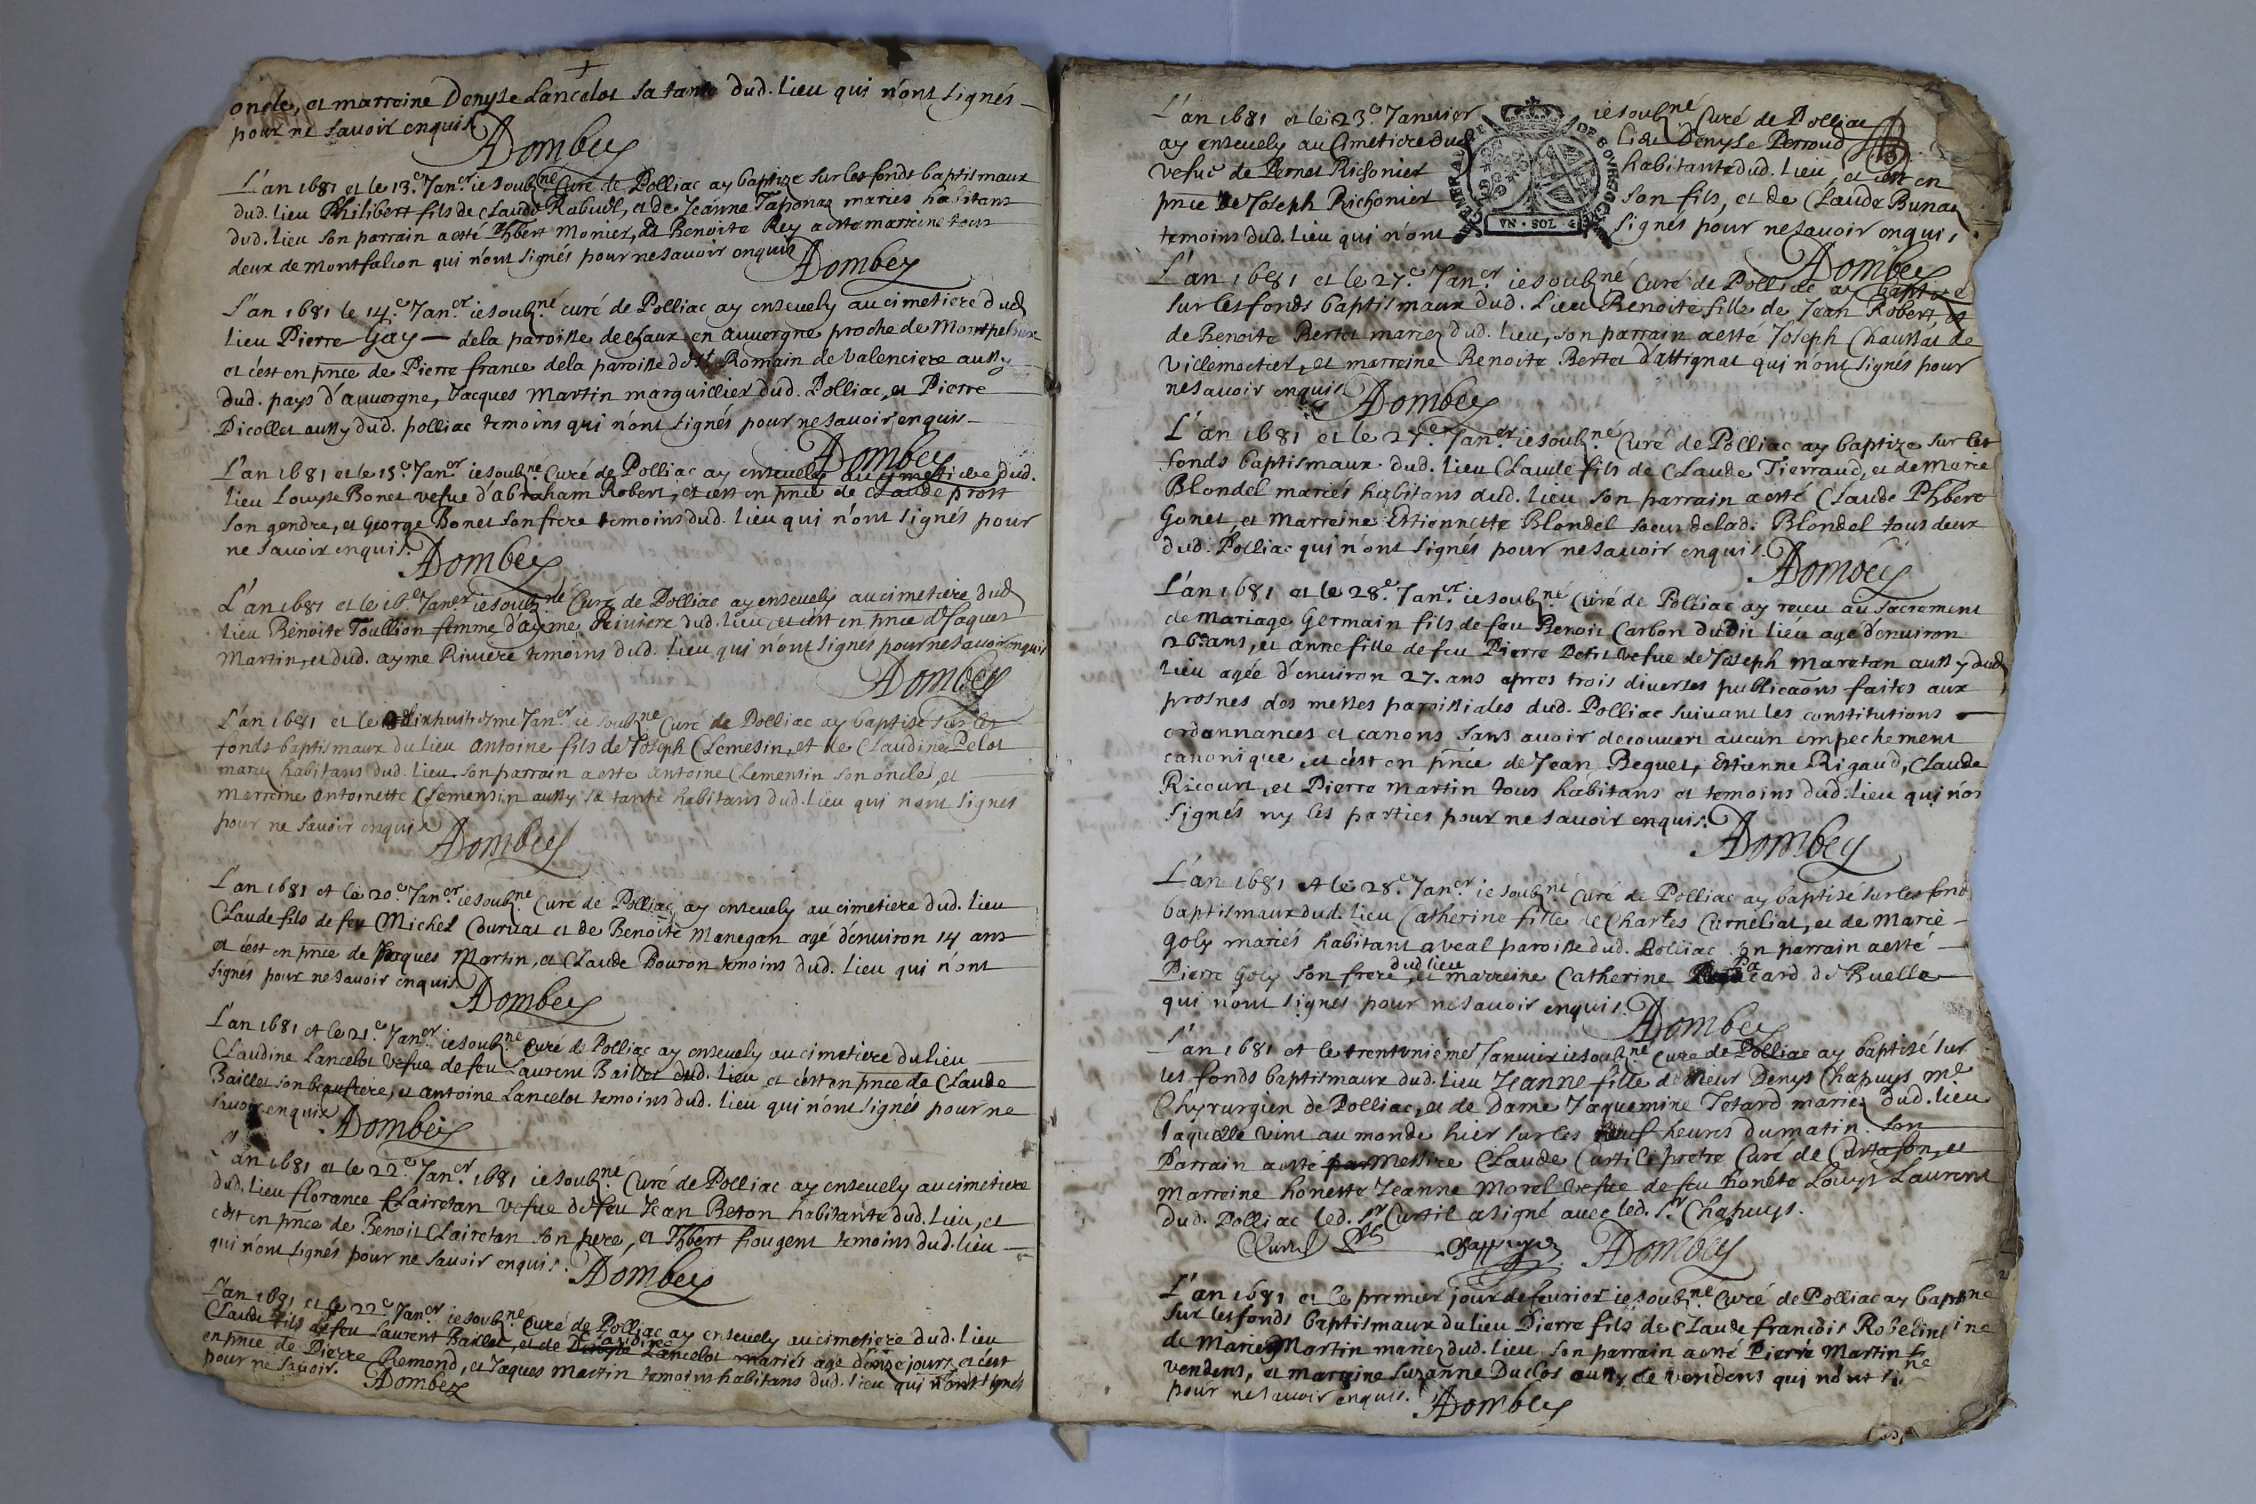 oncle, et marreine Denyse Lancelot sa tante dud. lieu qui n'ont signés
pour ne savoir enquis
Dombey
L'an 1681 et le 13.e Jan.er ie soubz.né Curé de Polliac ay baptize sur les fonds baptismaux
dud. lieu Philibert fils de Claude Rabuel, et de Jeanne Taponaz mariés habitans
dud. lieu son parrain a esté Phbert Monier, et Benoite Rey a esté marreine tous
deux de Montfalcon qui n'ont signés pour ne savoir enquis
Dombey
L'an 1681 le 14.e Jan.er ie soubz.né curé de Polliac ay ensevely au cimetiere dud
lieu Pierre Gay de la paroisse de en auvergne proche de
et c'est en pnce de Pierre france de la paroisse de St Romain de Valenciere aussy
dud. pays d'auvergne, Jacques Martin marguillier dud. Polliac, et Pierre
Picollet aussy dud. polliac temoins qui n'ont signés pour ne savoir enquis
Dombey
L'an 1681 et le 15.e Jan.er ie soubz.né Curé de Polliac ay ensevely au cimetiere dud.
lieu Louyse Bonet vefue d'abraham Robert, et c'est en pnce de Claude prost
son gendre, et George Bonet son frere temoins dud. lieu qui n'ont signés pour
ne savoir enquis.
Dombey
L'an 1681 et le 16.e Jan.er ie soubz.né Curé de Polliac ay ensevely au cimetiere dud
lieu Benoite Toullion femme d'aymé Riviere dud. lieu et c'est en pnce de Jaques
Martin, et dud. ayme Riviere temoins dud. lieu qui n'ont signés pour ne savoir enquis
Dombey
L'an 1681 et le dixhuit.me Jan.er ie soubz.né Curé de Polliac ay baptisé sur les
fonds baptismaux du lieu antoine fils de Joseph Clemesin, et de Claudine Pelot
mariez habitans dud. lieu. son parrain a esté antoine Clemensin son oncle, et
Marreine antoinette Clemensin aussy sa tante habitans dud. lieu qui n'ont signés
pour ne savoir enquis
Dombey
L'an 1681 et le 20.e Jan.er ie soubz.né Curé de Polliac, ay ensevely au cimetiere dud. lieu
Claude fils de feu Michel Couruat et de Benoite Manegan agé d'environ 14 ans
et c'est en pnce de Jaques Martin, et Claude Bouron temoins dud. lieu qui n'ont
signés pour ne savoir enquis
Dombey
L'an 1681 et le 21.e Jan.er ie soubz.né Curé de Polliac ay ensevely au cimetiere du lieu
Claudine Lancelot vefue de feu Laurent Baillet dud. lieu et c'est en pnce de Claude
Baillet son beaufrere, et antoine Lancelot temoins dud. lieu qui n'ont signés pour ne
savoir enquis.
Dombey
L'an 1681 et le 22.e Jan.er 1681 ie soubz.né Curé de Polliac ay ensevely au cimetiere
dud. lieu florance Clairetan vefue de feu Jean Reton habitante dud. lieu, et
c'est en pnce de Benoit Clairetan son pere, et Phbert fougent temoins dud. lieu
qui n'ont signés pour ne savoir enquis.
Dombey
L'an 1681 et le 22.e Jan.er ie soubz.né Curé de Polliac ay ensevely au cimetiere dud. lieu
Claude fils de feu Laurent Baillet, et de Claudine Lancelot mariés agé d'onze jours, et c'est
en pnce de Pierre Remond, et Jaques Martin temoins habitans dud. lieu qui n'ont signés
pour ne savoir.
Dombey
L'an 1681 et le 23.e Janvier ie soubz.né Curé de Polliac
ay ensevely au Cimetiere dud lieu Denyse Perroud
vefue de Pernet Richonier habitante dud. lieu et c'est en
pnce de Joseph Richonier son fils, et de Claude Bunaz
temoins dud. lieu qui n'ont signés pour ne savoir enquis
GENERALITE DE BOVRGOGNE
VN · SOL
Dombey
L'an 1681 et le 27.e Jan.er ie soubz.né Curé de Polliac ay baptizé
sur les fonds baptismaux dud. lieu Benoite fille de Jean Robert, et
de Benoite Bertet mariez dud. lieu, son parrain a esté Joseph Chaussat de
Villemoctier, et marreine Benoite Bertet d'attignat qui n'ont signés pour
ne savoir enquis
Dombey
L'an 1681 et le 27.e Jan.er ie soubz.né Curé de Polliac ay baptize sur les
fonds baptismaux dud. lieu Claude fils de Claude Tierraud, et de Marie
Blondel mariés habitans dud. lieu son parrain a esté Claude Phbert
Gonet, et Marreine Estiennette Blondel soeur de lad. Blondel tous deux
dud. Polliac qui n'ont signés pour ne savoir enquis.
Dombey
L'an 1681 et le 28.e Jan.er ie soubz.né Curé de Polliac ay receu au sacrement
de Mariage Germain fils de feu Benoit Carbon dudit lieu agé d'environ
26. ans, et anne fille de feu Pierre Petit vefue de Joseph Maretan aussy dud
lieu agée d'environ 27. ans apres trois diverses publicaons faites aux
prosnes des messes paroissiales dud. Polliac suivant les constitutions
ordonnances et canons sans avoir decouvert aucun empechement
canonique, et c'est en pnce de Jean Beguet, Estienne Rigaud, Claude
Ricourt, et Pierre Martin tous habitans et temoins dud. lieu qui n'on
signés ny les parties pour ne savoir enquis.
Dombey
L'an 1681 et le 28.e Jan.er ie soubz.né Curé de Polliac ay baptisé sur les fond
baptismaux dud. lieu Catherine fille de Charles Curneliat, et de Marie
Goly mariés habitant a veal paroisse dud. Polliac son parrain a esté
Pierre Goly son frere dud lieu, et marreine Catherine card de Ruelle
qui n'ont signés pour ne savoir enquis.
Dombey
L'an 1681 et le trentuniéme Janvier ie soubz.né Curé de Polliac ay baptisé sur
les fonds baptismaux dud. lieu Jeanne fille de sieur Denys Chapuys m.e
Chyrurgien de Polliac, et de Dame Jaquemine Tetard mariez dud. lieu
laquelle vint au monde hier sur les neuf heures du matin. son
Parrain a esté Messire Claude Curtil pretre Curé de Curtafon, et
Marreine honeste Jeanne Morel vefue de feu honéte Louys Laurent
dud. Polliac led. Sr Curtil a signé avec led. Sr Chapuys.
Curtil Chappuys Dombey
L'an 1681 et le premier jour de fevrier ie soubz.né Curé de Polliac ay bapti
sur les fonds baptismaux du lieu Pierre fils de Claude francois Robelin
de Marie Martin mariez dud. lieu son parrain a esté Pierre Martin
vendens, et marreine Suzanne Duclos aussy de vendens qui n'ont si
pour ne savoir enquis.
Dombey